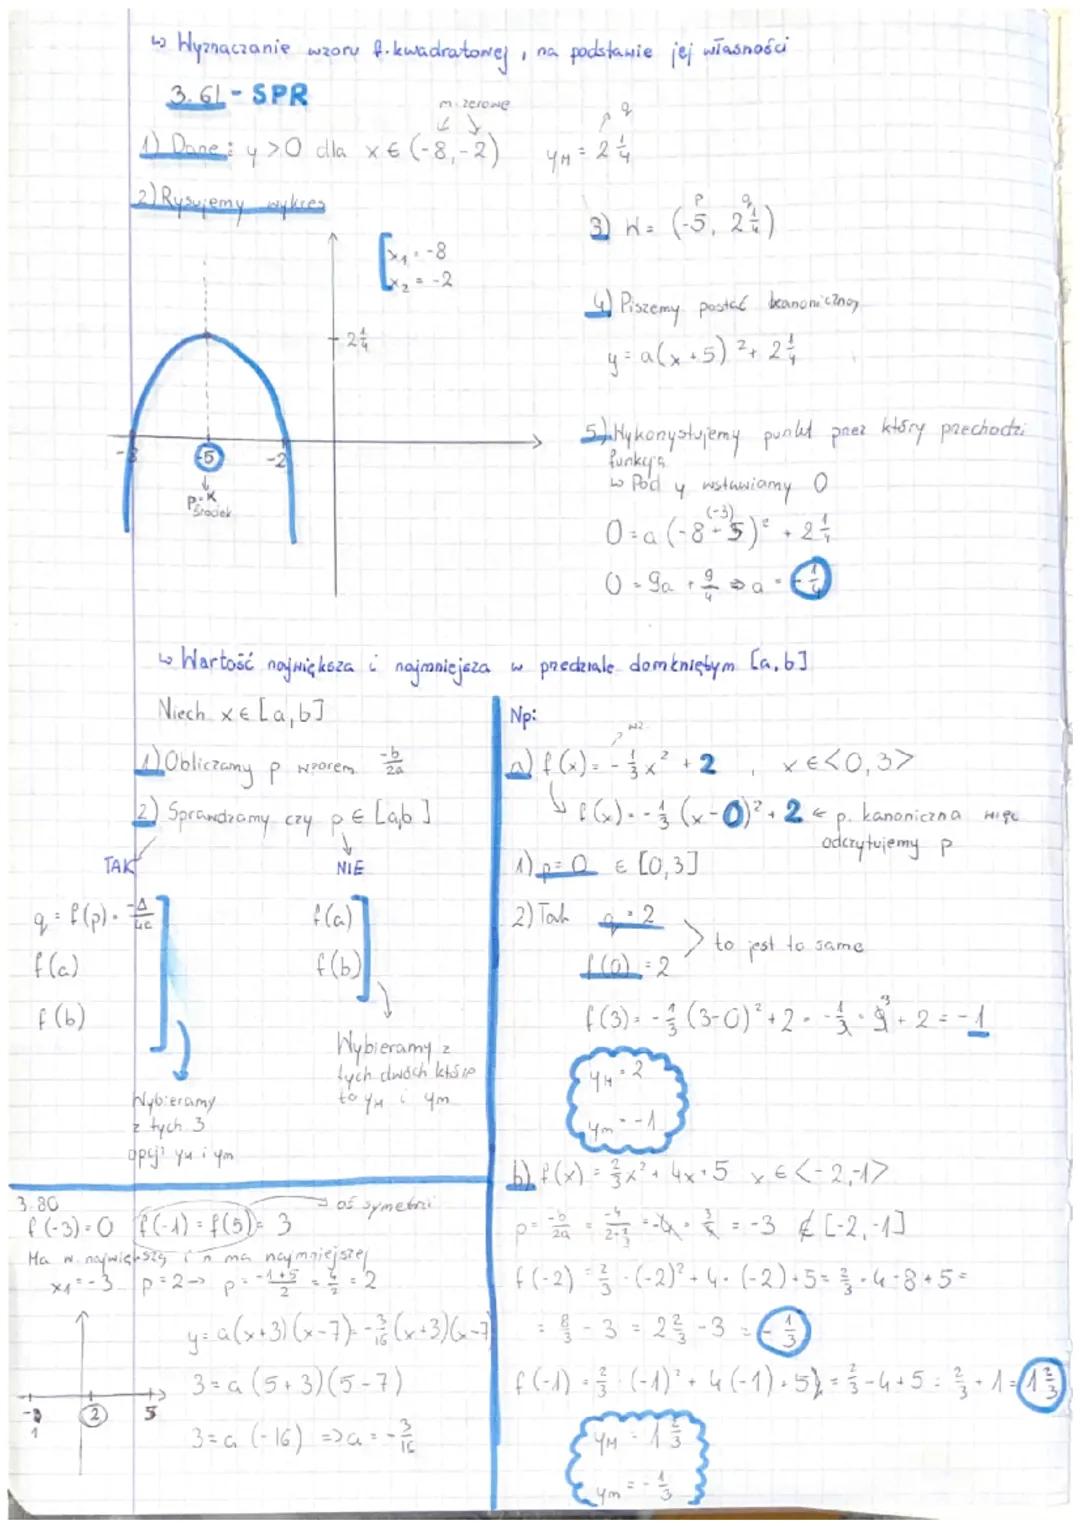 ↳ Wyznaczanie wzoru f. kwadratowej, na podstawie jej własności
3.61 - SPR
m. zerowe
1) Dane: y > 0 dla x ∈ (-8, -2)
q
yM = 2 1/4
2) Rysujemy wykres
x₁ = -8
x₂ = -2
2 1/4
-8
-5
-2
p = x
środek
p q
3) W = (-5, 2 1/4)
4) Piszemy postać kanoniczną
y = a(x+5)² + 2 1/4
5) Wykorzystujemy punkt przez który przechodzi
funkcja
↳ Pod y wstawiamy 0
(-3)
0 = a(-8+5)² + 2 1/4
0 = 9a + 9/4 ⇒ a = -1/4
↳ Wartość największa i najmniejsza w przedziale domkniętym [a, b]
Niech x ∈ [a, b]
1) Obliczamy p wzorem -b/2a
2) Sprawdzamy czy p ∈ [a,b]
TAK
NIE
q = f(p) = -Δ/4a
f(a)
f(b)
Wybieramy
z tych 3
opcji yM i ym
f(a)
f(b)
Wybieramy z
tych dwóch które
to yM i ym
Np:
a) f(x) = -1/3 x² + 2, x ∈ <0, 3>
f(x) = -1/3 (x-0)² + 2 ← p. kanoniczna więc
odczytujemy p
1) p = 0 ∈ [0,3]
2) Tak q = 2
f(0) = 2
to jest to samo
f(3) = -1/3 (3-0)² + 2 = -1/3 · 9 + 2 = -1
yM = 2
ym = -1
b) f(x) = 2/3 x² + 4x + 5 x ∈ <-2, -1>
p = -b/2a = -4/(2·2/3) = -4 · 3/4 = -3 ∉ [-2, -1]
f(-2) = 2/3 · (-2)² + 4 · (-2) + 5 = 2/3 · 4 - 8 + 5 =
= 8/3 - 3 = 2 2/3 - 3 = -1/3
f(-1) = 2/3 · (-1)² + 4(-1) + 5 = 2/3 - 4 + 5 = 2/3 + 1 = 1 2/3
yM = 1 2/3
ym = -1/3
3.80
oś symetrii
f(-3) = 0 f(-1) = f(5) = 3
Ma w. największą i n ma najmniejszej
x₁ = -3 p = 2 → p = (-1+5)/2 = 4/2 = 2
y = a(x+3)(x-7) = -3/16 (x+3)(x-7)
3 = a(5+3)(5-7)
3 = a(-16) => a = -3/16
2
5